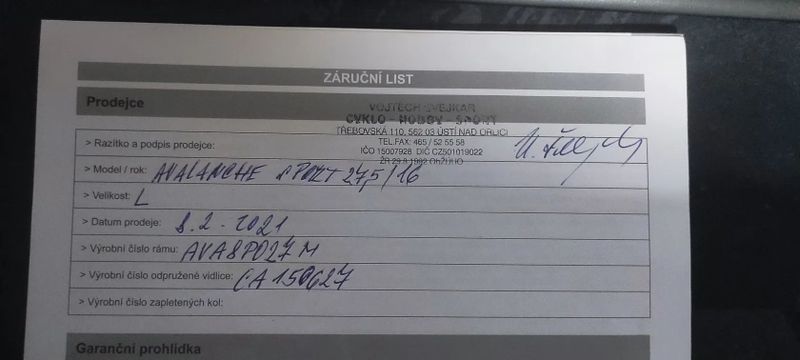 ZÁRUČNÍ LIST
Prodejce
VOJTĚCH ŠVEJKAR
CYKLO - HOBBY - SPORT
TŘEBOVSKÁ 110, 562 03 ÚSTÍ NAD ORLICÍ
TEL.FAX: 465 / 52 55 58
IČO 15007928 DIČ CZ501019022
> Razítko a podpis prodejce:
> Model / rok: AVALANCHE SPORT 27,5/16
> Velikost: L
> Datum prodeje: 8.2.2021
> Výrobní číslo rámu: AVASPO27M
> Výrobní číslo odpružené vidlice: CA150627
> Výrobní číslo zapletených kol:
Garanční prohlídka